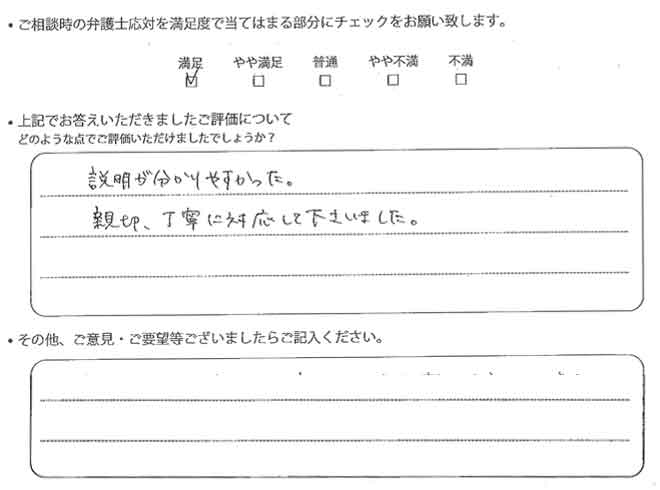 ・ご相談時の弁護士応対を満足度で当てはまる部分にチェックをお願い致します。
満足 やや満足 普通 やや不満 不満
☑ □ □ □ □
・上記でお答えいただきましたご評価について
どのような点でご評価いただけましたでしょうか？
説明が分かりやすかった。
親切、丁寧に対応して下さいました。
・その他、ご意見・ご要望等ございましたらご記入ください。